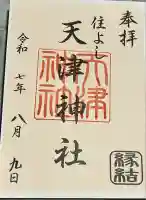 奉拝
住よし
天津神社
天津神社
令和七年
八月九日
縁結